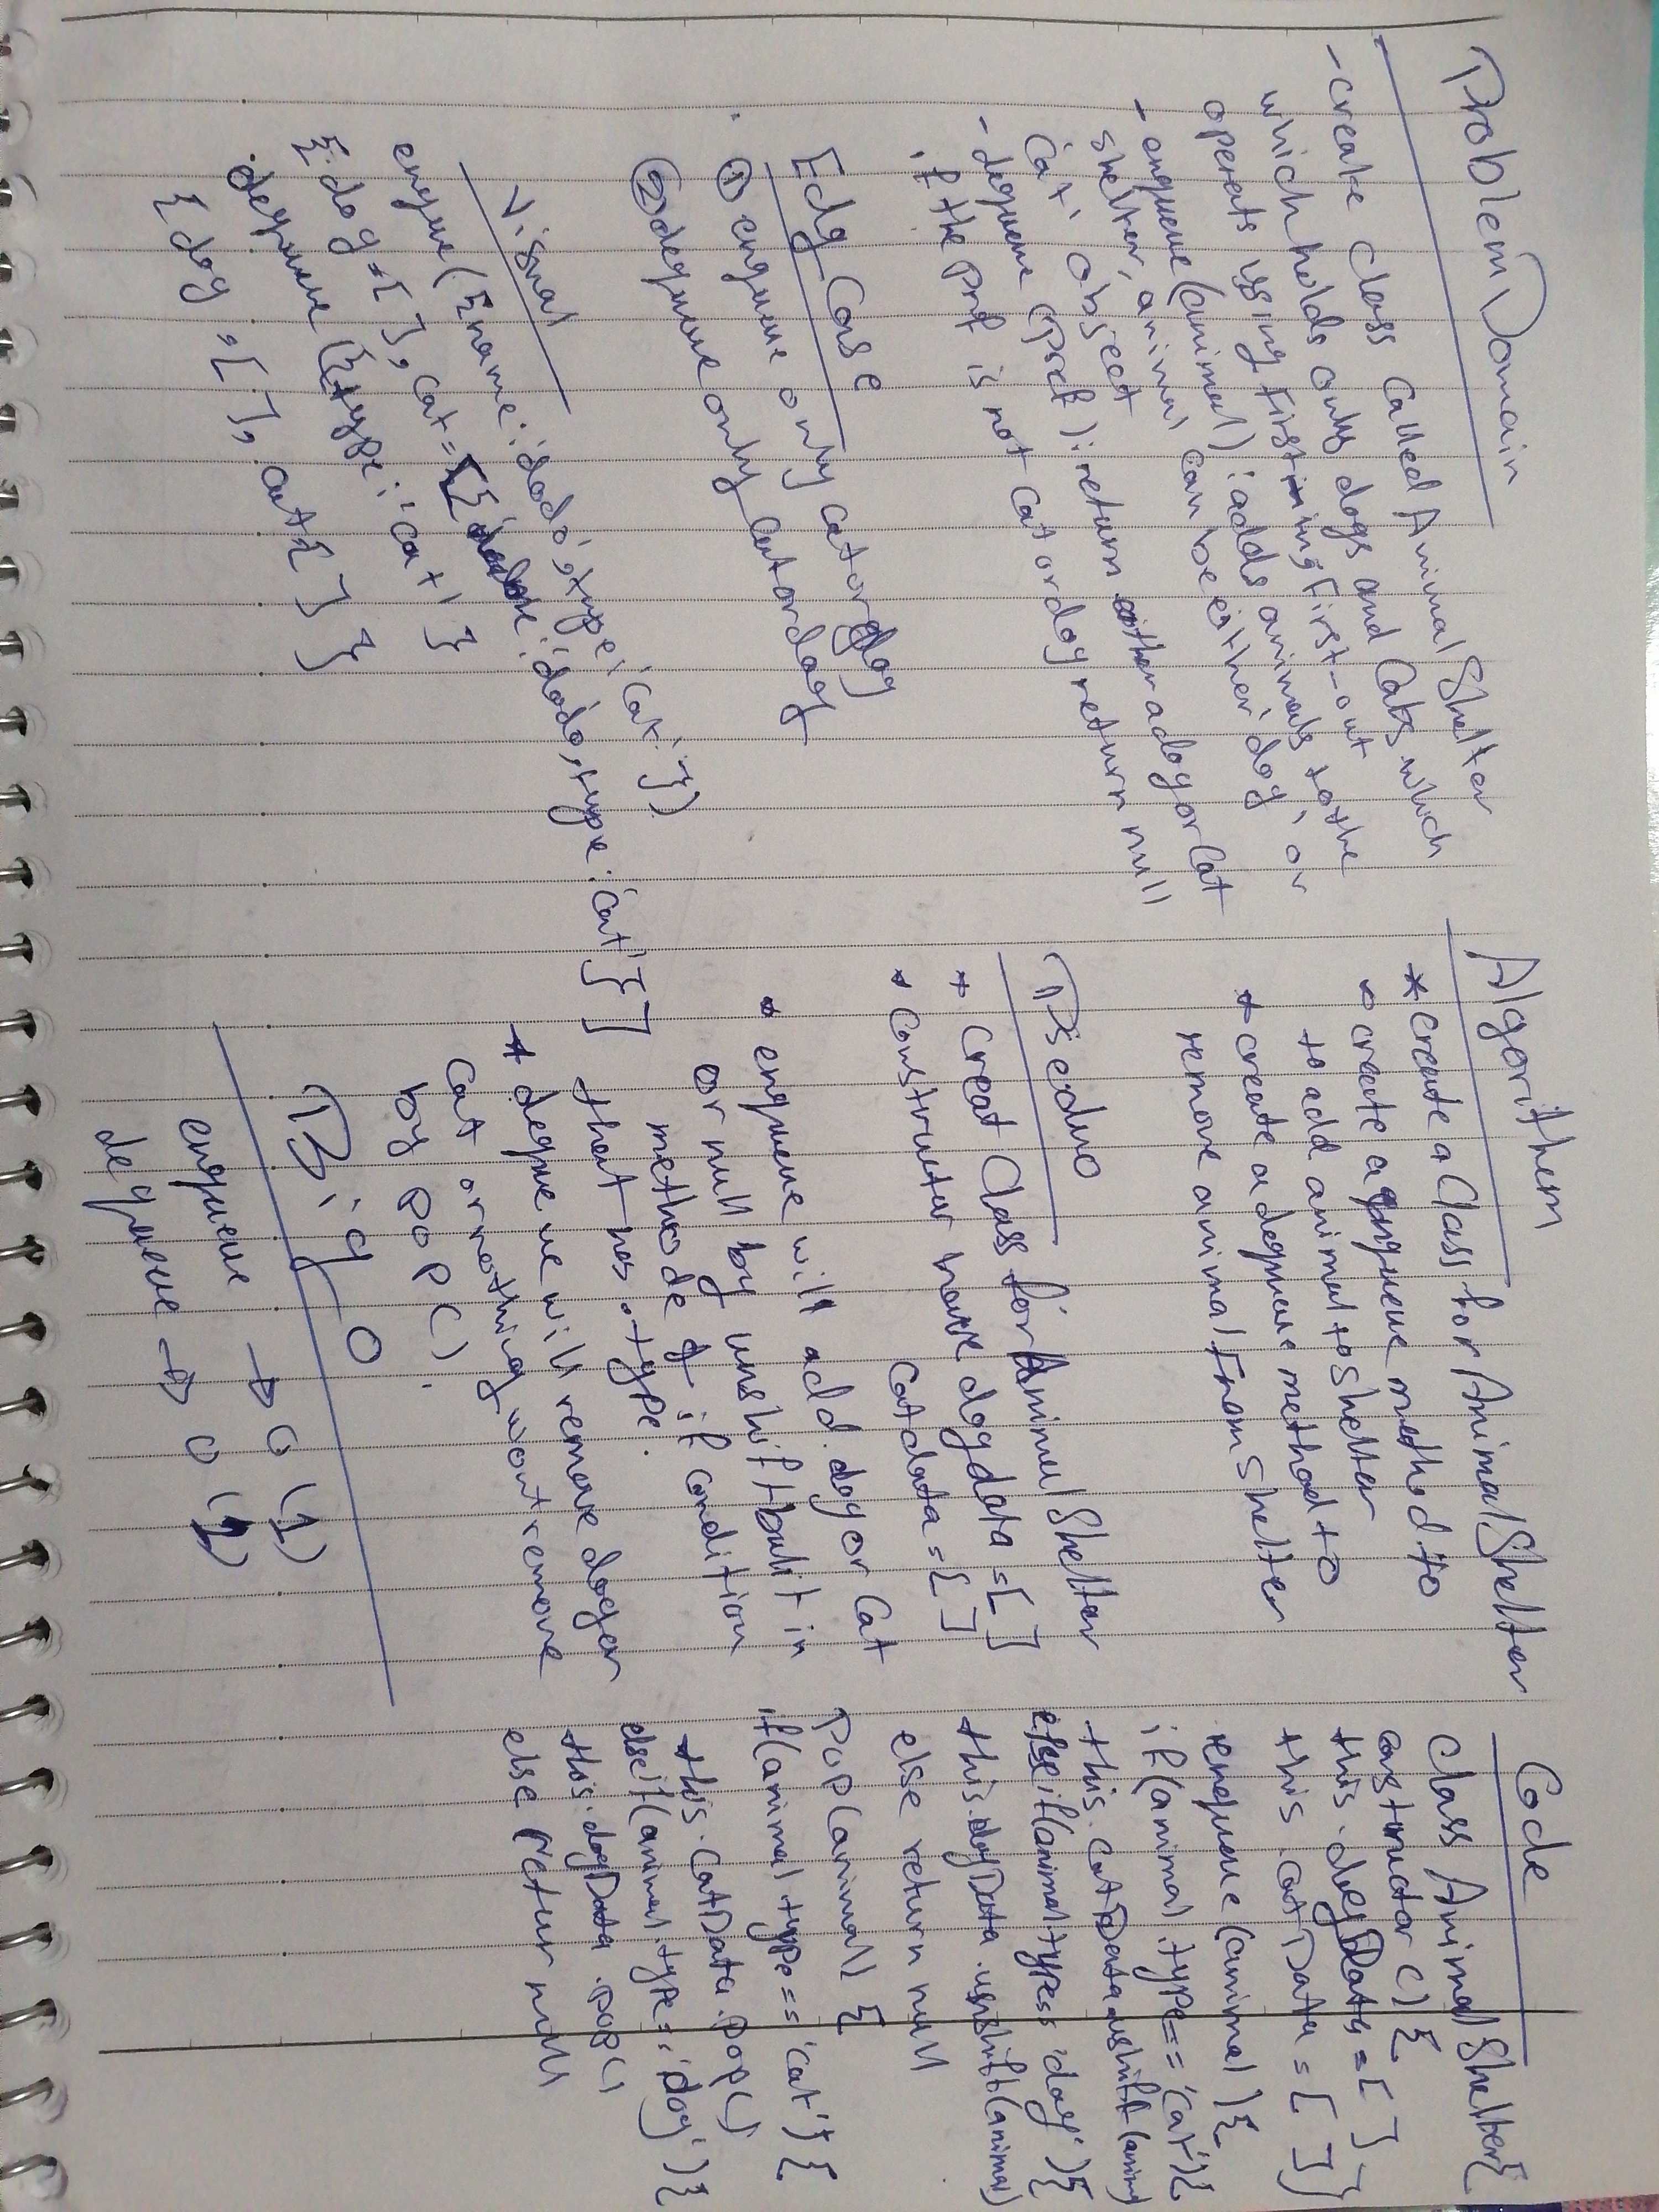 Problem Domain
- create class called Animal Shelter
which holds only dogs and Cats which
operats using first-in, first-out
- enqueue (animal) : adds animals to the
shelter, animal can be either 'dog', or
'cat' object
- dequeue (pref) : return either a dog or cat
if the pref is not cat or dog return null
Edg Case
① enqueue only cat or dog
② dequeue only cat or dog
Visual
enqeue ({name: 'dodo', type: 'cat'})
{ dog = [ ], cat = [{ : 'dodo, type: 'cat'}]
dequeue ({type: 'cat' }
{ dog : [ ], cat[ ] }
Algorithem
* create a Class for Animal Shelter
* create a enqueue method to
to add animal to shelter
* create a dequeue method to
remove animal from shelter
Pseduo
* creat Class for Animal Shelter
* constructur have dogdata = [ ]
catdata = [ ]
* enqueue will add dog or cat
or null by unshift bulit in
methode & if condition
that has .type.
* deque ue will remove dog or
cat or nothing wont remove
by pop( ).
Big O
enqueue → O (1)
dequeue → O (1)
Code
class Animal Shelter{
constructor ( ) {
this .dogData = [ ]
this .catData = [ ] }
enqueue (animal ) {
if (animal .type == 'cat') {
this .catData .unshift (animal
else if (animal.type = 'dog' ) {
this .dogData .unshift (animal)
else return null
Pop (animal) {
if(animal .type == 'cat') {
this .catData .pop( )
else if (animal .type = 'dog' ) {
this .dogData .pop( )
else retur null